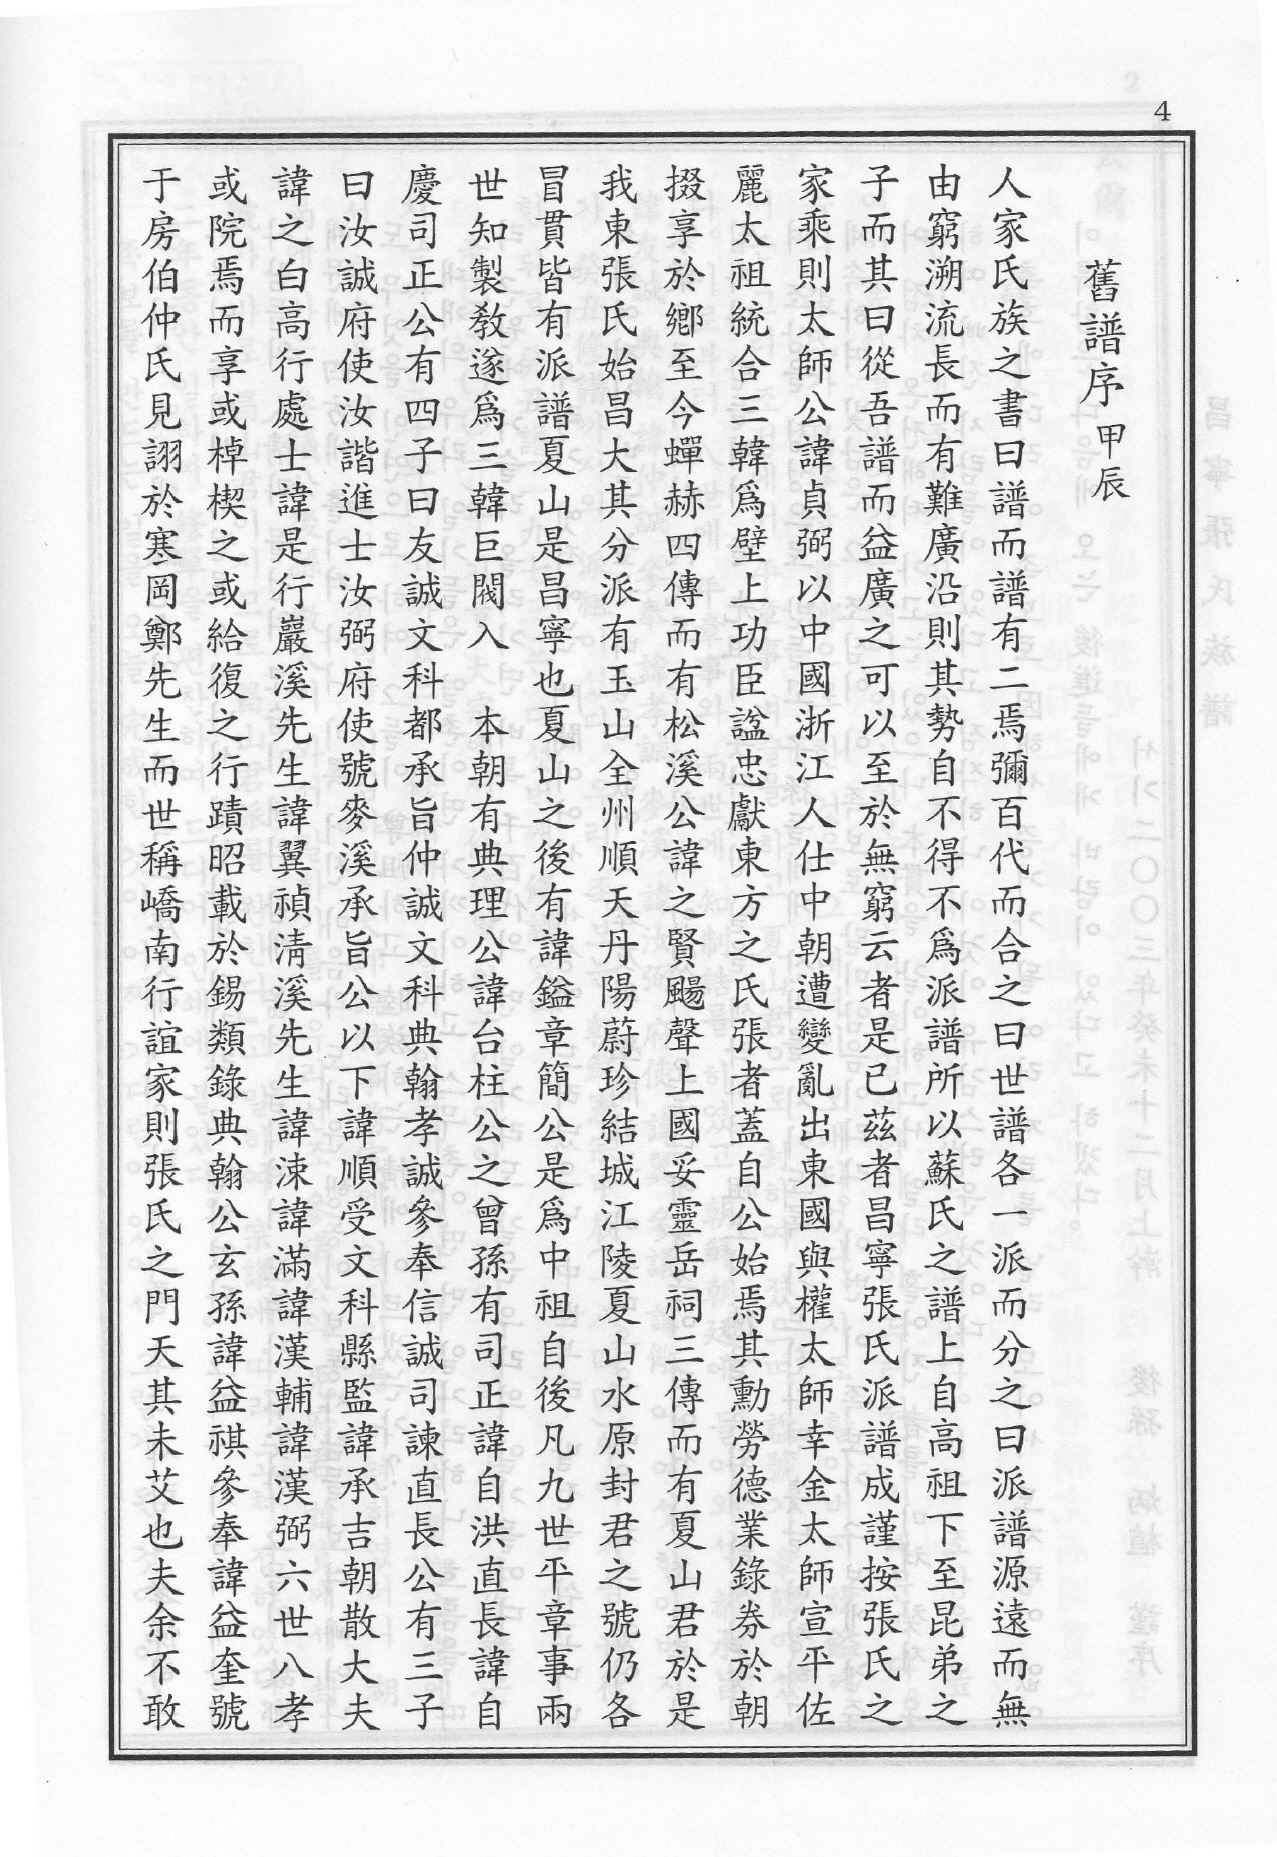 4
舊譜序 甲辰
人家氏族之書曰譜而譜有二焉彌百代而合之曰世譜各一派而分之曰派譜源遠而無
由窮溯流長而有難廣沿則其勢自不得不爲派譜所以蘇氏之譜上自高祖下至昆弟之
子而其曰從吾譜而益廣之可以至於無窮云者是已茲者昌寧張氏派譜成謹按張氏之
家乘則太師公諱貞弼以中國浙江人仕中朝遭變亂出東國與權太師幸金太師宣平佐
麗太祖統合三韓爲壁上功臣諡忠獻東方之氏張者蓋自公始焉其勳勞德業錄券於朝
掇享於鄕至今蟬赫四傳而有松溪公諱之賢颺聲上國妥靈岳祠三傳而有夏山君於是
我東張氏始昌大其分派有玉山全州順天丹陽蔚珍結城江陵夏山水原封君之號仍各
冒貫皆有派譜夏山是昌寧也夏山之後有諱鎰章簡公是爲中祖自後凡九世平章事兩
世知製敎遂爲三韓巨閥入 本朝有典理公諱台柱公之曾孫有司正諱自洪直長諱自
慶司正公有四子曰友誠文科都承旨仲誠文科典翰孝誠參奉信誠司諫直長公有三子
曰汝誠府使汝諧進士汝弼府使號麥溪承旨公以下諱順受文科縣監諱承吉朝散大夫
諱之白高行處士諱是行巖溪先生諱翼禎淸溪先生諱涑諱滿諱漢輔諱漢弼六世八孝
或院焉而享或棹楔之或給復之行蹟昭載於錫類錄典翰公玄孫諱益祺參奉諱益奎號
于房伯仲氏見詡於寒岡鄭先生而世稱嶠南行誼家則張氏之門天其未艾也夫余不敢